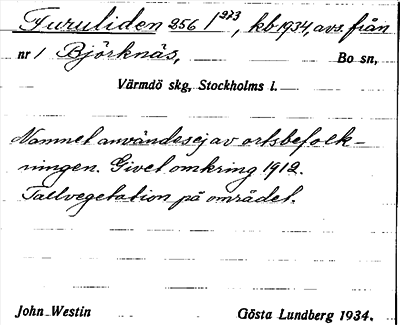 Furuliden 256 1²⁷³, kb 1934 avs. från
nr 1 Björknäs, Bo sn,
Värmdö skg, Stockholms l.
Namnet användes ej av ortsbefolk-
ningen. Givet omkring 1912.
Tallvegetation på området.
John Westin Gösta Lundberg 1934.